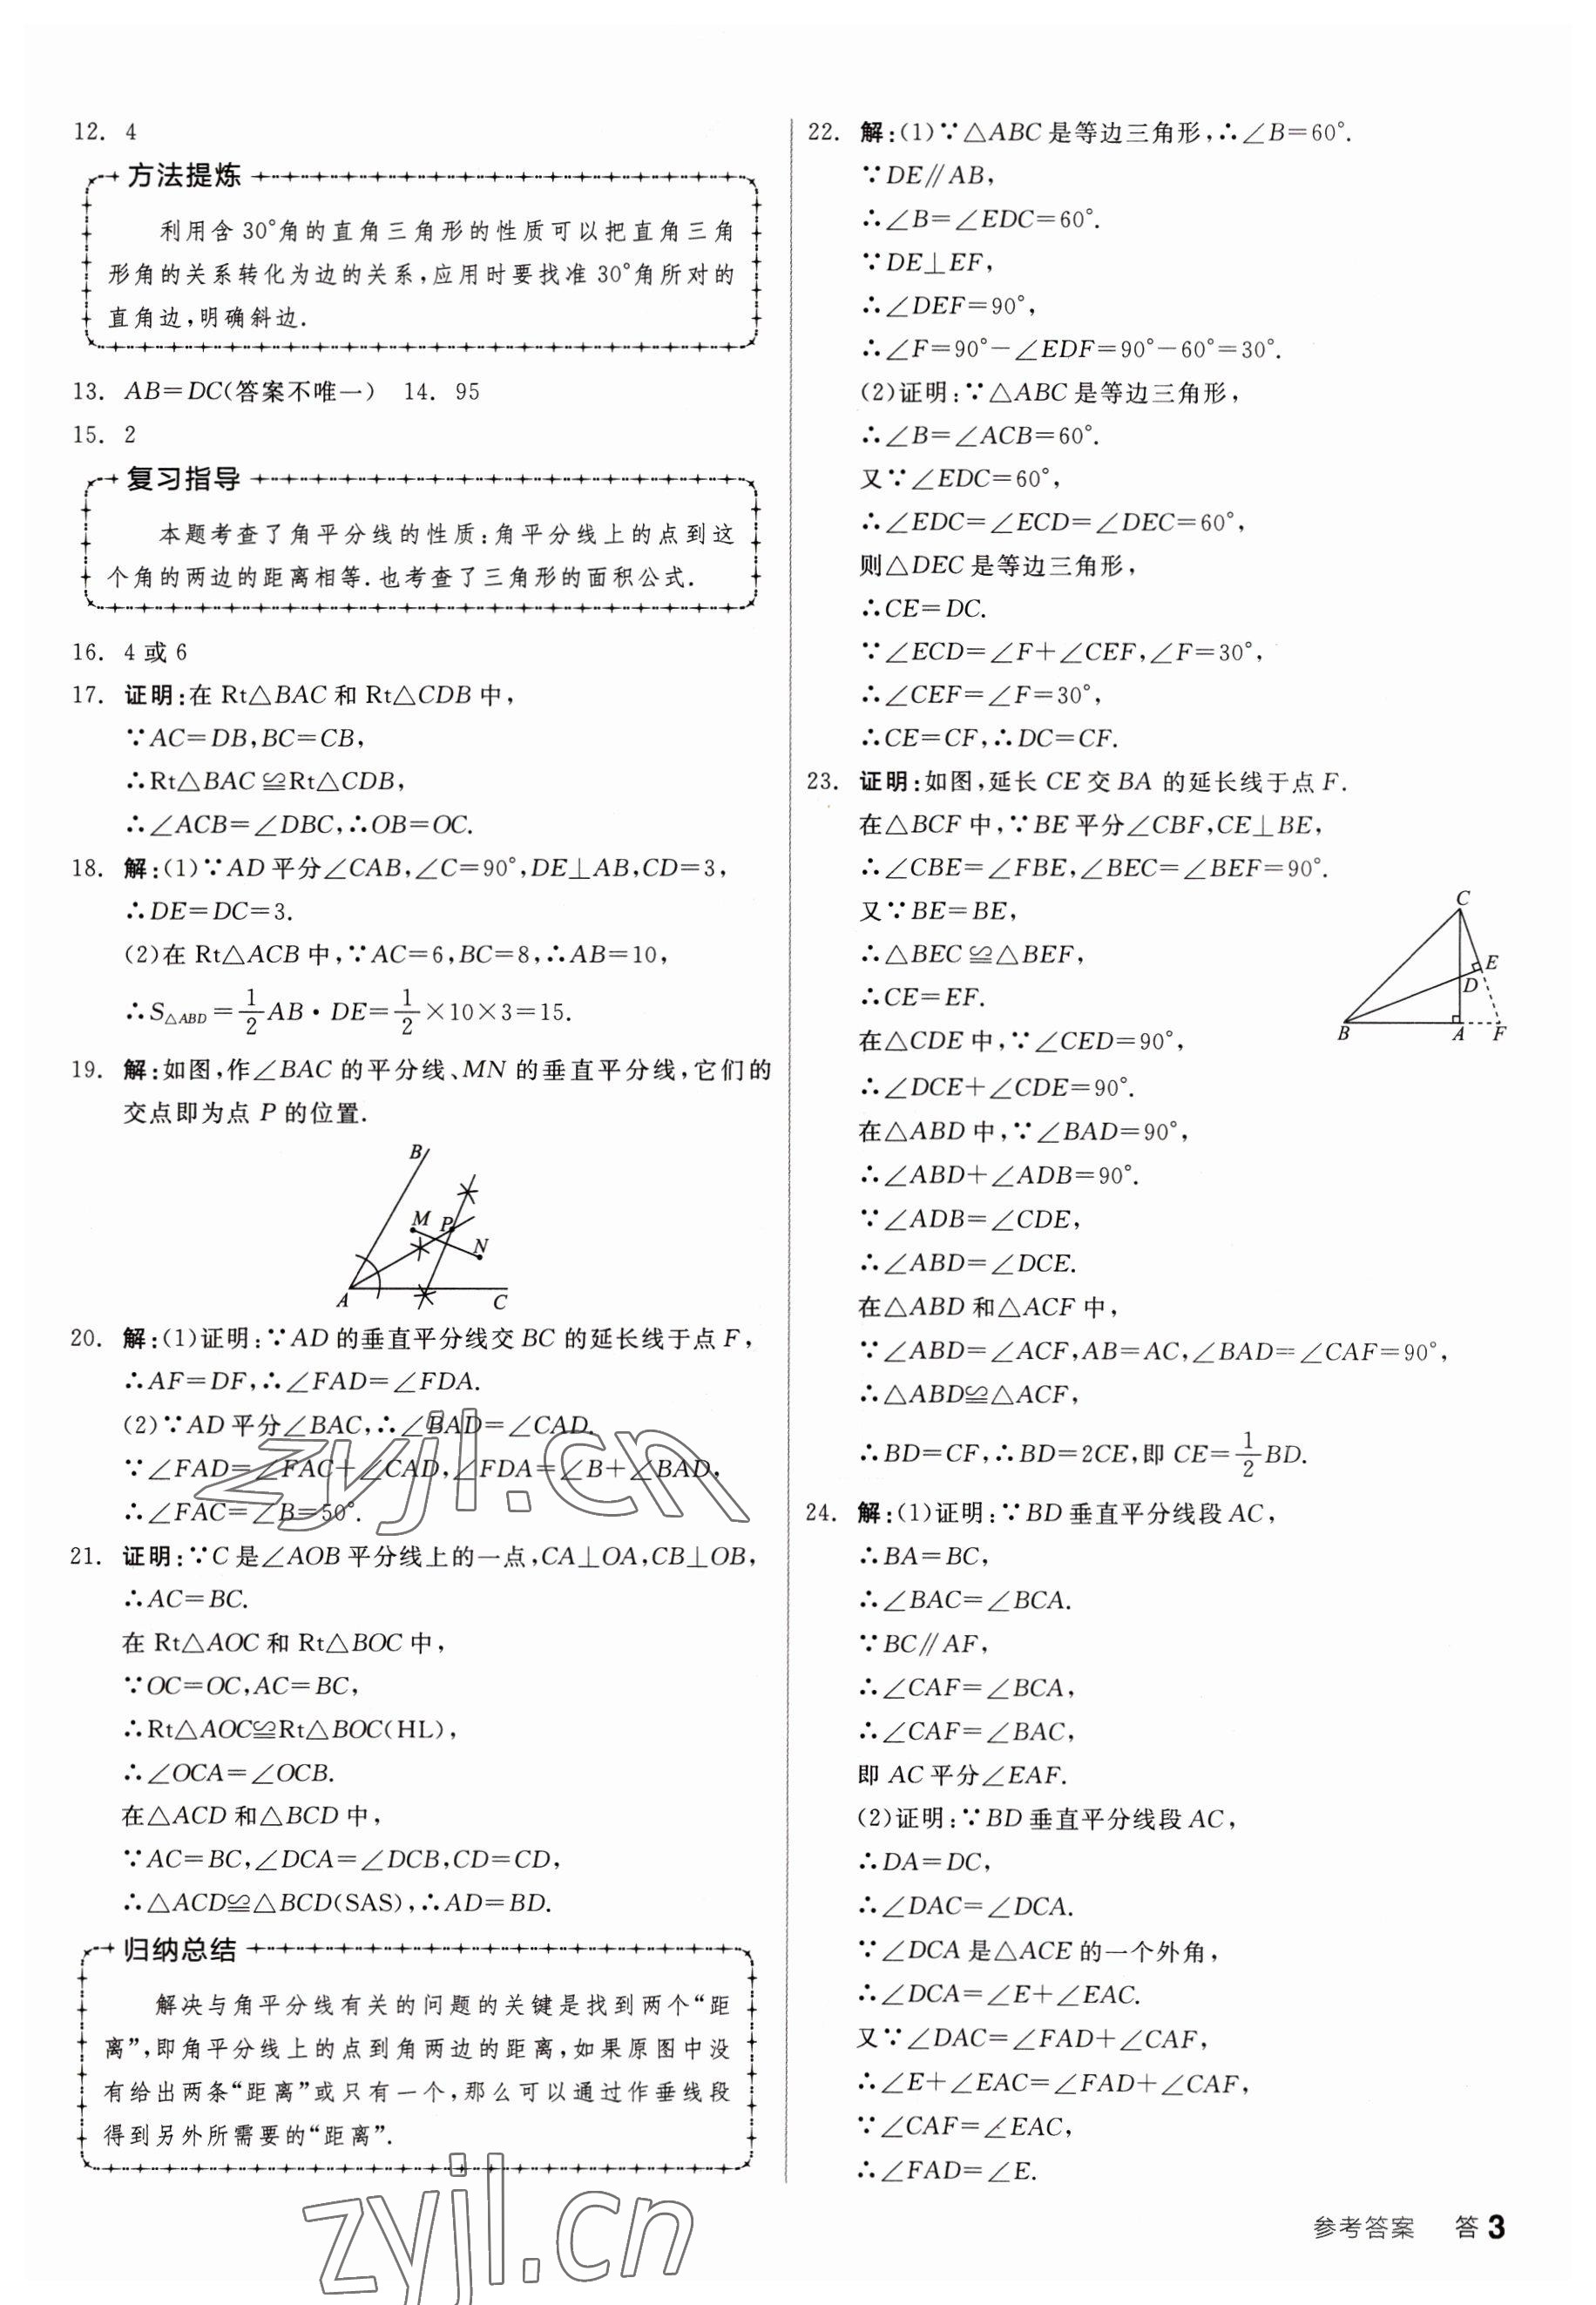 12. 4
方法提炼
利用含 30°角的直角三角形的性质可以把直角三角
形角的关系转化为边的关系,应用时要找准 30°角所对的
直角边,明确斜边.
13. AB=DC(答案不唯一) 14. 95
15. 2
复习指导
本题考查了角平分线的性质:角平分线上的点到这
个角的两边的距离相等.也考查了三角形的面积公式.
16. 4 或 6
17. 证明:在 Rt△BAC 和 Rt△CDB 中,
∵AC=DB,BC=CB,
∴Rt△BAC≌Rt△CDB,
∴∠ACB=∠DBC,∴OB=OC.
18. 解:(1)∵AD 平分∠CAB,∠C=90°,DE⊥AB,CD=3,
∴DE=DC=3.
(2)在 Rt△ACB 中,∵AC=6,BC=8,∴AB=10,
∴S△ABD=1/2AB·DE=1/2×10×3=15.
19. 解:如图,作∠BAC 的平分线、MN 的垂直平分线,它们的
交点即为点 P 的位置.
B
M P
N
A C
20. 解:(1)证明:∵AD 的垂直平分线交 BC 的延长线于点 F,
∴AF=DF,∴∠FAD=∠FDA.
(2)∵AD 平分∠BAC,∴∠BAD=∠CAD.
∵∠FAD=∠FAC+∠CAD,∠FDA=∠B+∠BAD,
∴∠FAC=∠B=50°.
21. 证明:∵C 是∠AOB 平分线上的一点,CA⊥OA,CB⊥OB,
∴AC=BC.
在 Rt△AOC 和 Rt△BOC 中,
∵OC=OC,AC=BC,
∴Rt△AOC≌Rt△BOC(HL),
∴∠OCA=∠OCB.
在△ACD 和△BCD 中,
∵AC=BC,∠DCA=∠DCB,CD=CD,
∴△ACD≌△BCD(SAS),∴AD=BD.
归纳总结
解决与角平分线有关的问题的关键是找到两个“距
离”,即角平分线上的点到角两边的距离,如果原图中没
有给出两条“距离”或只有一个,那么可以通过作垂线段
得到另外所需要的“距离”.
22. 解:(1)∵△ABC 是等边三角形,∴∠B=60°.
∵DE∥AB,
∴∠B=∠EDC=60°.
∵DE⊥EF,
∴∠DEF=90°,
∴∠F=90°-∠EDF=90°-60°=30°.
(2)证明:∵△ABC 是等边三角形,
∴∠B=∠ACB=60°.
又∵∠EDC=60°,
∴∠EDC=∠ECD=∠DEC=60°,
则△DEC 是等边三角形,
∴CE=DC.
∵∠ECD=∠F+∠CEF,∠F=30°,
∴∠CEF=∠F=30°,
∴CE=CF,∴DC=CF.
23. 证明:如图,延长 CE 交 BA 的延长线于点 F.
在△BCF 中,∵BE 平分∠CBF,CE⊥BE,
∴∠CBE=∠FBE,∠BEC=∠BEF=90°.
又∵BE=BE,
∴△BEC≌△BEF,
∴CE=EF.
在△CDE 中,∵∠CED=90°,
∴∠DCE+∠CDE=90°.
在△ABD 中,∵∠BAD=90°,
∴∠ABD+∠ADB=90°.
∵∠ADB=∠CDE,
∴∠ABD=∠DCE.
在△ABD 和△ACF 中,
∵∠ABD=∠ACF,AB=AC,∠BAD=∠CAF=90°,
∴△ABD≌△ACF,
∴BD=CF,∴BD=2CE,即 CE=1/2BD.
C
E
D
B A F
24. 解:(1)证明:∵BD 垂直平分线段 AC,
∴BA=BC,
∴∠BAC=∠BCA.
∵BC∥AF,
∴∠CAF=∠BCA,
∴∠CAF=∠BAC,
即 AC 平分∠EAF.
(2)证明:∵BD 垂直平分线段 AC,
∴DA=DC,
∴∠DAC=∠DCA.
∵∠DCA 是△ACE 的一个外角,
∴∠DCA=∠E+∠EAC.
又∵∠DAC=∠FAD+∠CAF,
∴∠E+∠EAC=∠FAD+∠CAF,
∵∠CAF=∠EAC,
∴∠FAD=∠E.
zyjl.cn
zyjl.cn
参考答案 答 3